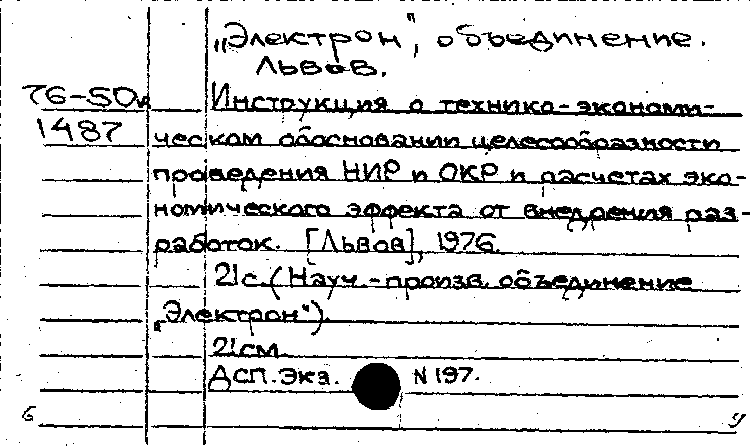 „Электрон", объединение.
Львов.
76-50к Инструкция о технико-экономи-
1487 ческом обосновании целесообразности
проведения НИР и ОКР и расчетах эко-
номического эффекта от внедрения раз-
работок. [Львов], 1976.
21с. (Науч.-произв. объединение
„Электрон").
21см.
ДСП. Экз. N 197.
б у